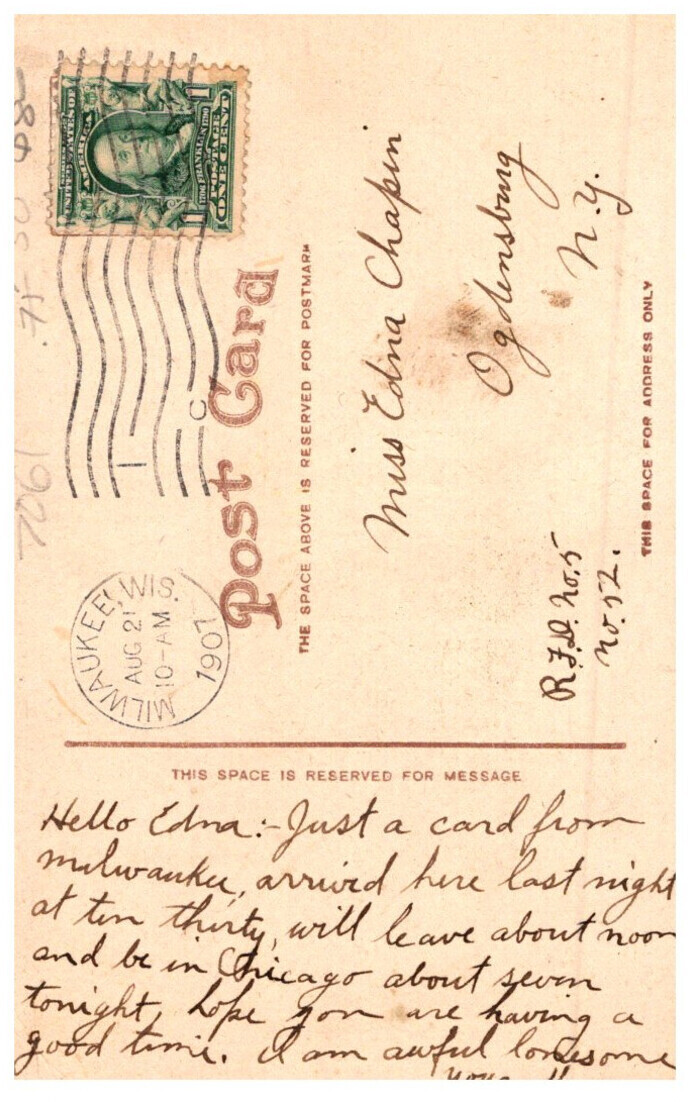 UNITED STATES OF
AMERICA
1706 FRANKLIN 1790
POSTAGE
1 ONE CENT 1
C
1
MILWAUKEE, WIS.
AUG 21
10-AM
1907
Post Card
THE SPACE ABOVE IS RESERVED FOR POSTMARK
Miss Edna Chapin
Ogdensburg
N.Y.
R.F.D. No. 5
No. 52.
THIS SPACE FOR ADDRESS ONLY
THIS SPACE IS RESERVED FOR MESSAGE
Hello Edna:- Just a card from
Milwaukee, arrived here last night
at ten thirty, will leave about noon
and be in Chicago about seven
tonight, hope you are having a
good time. I am awful lonesome